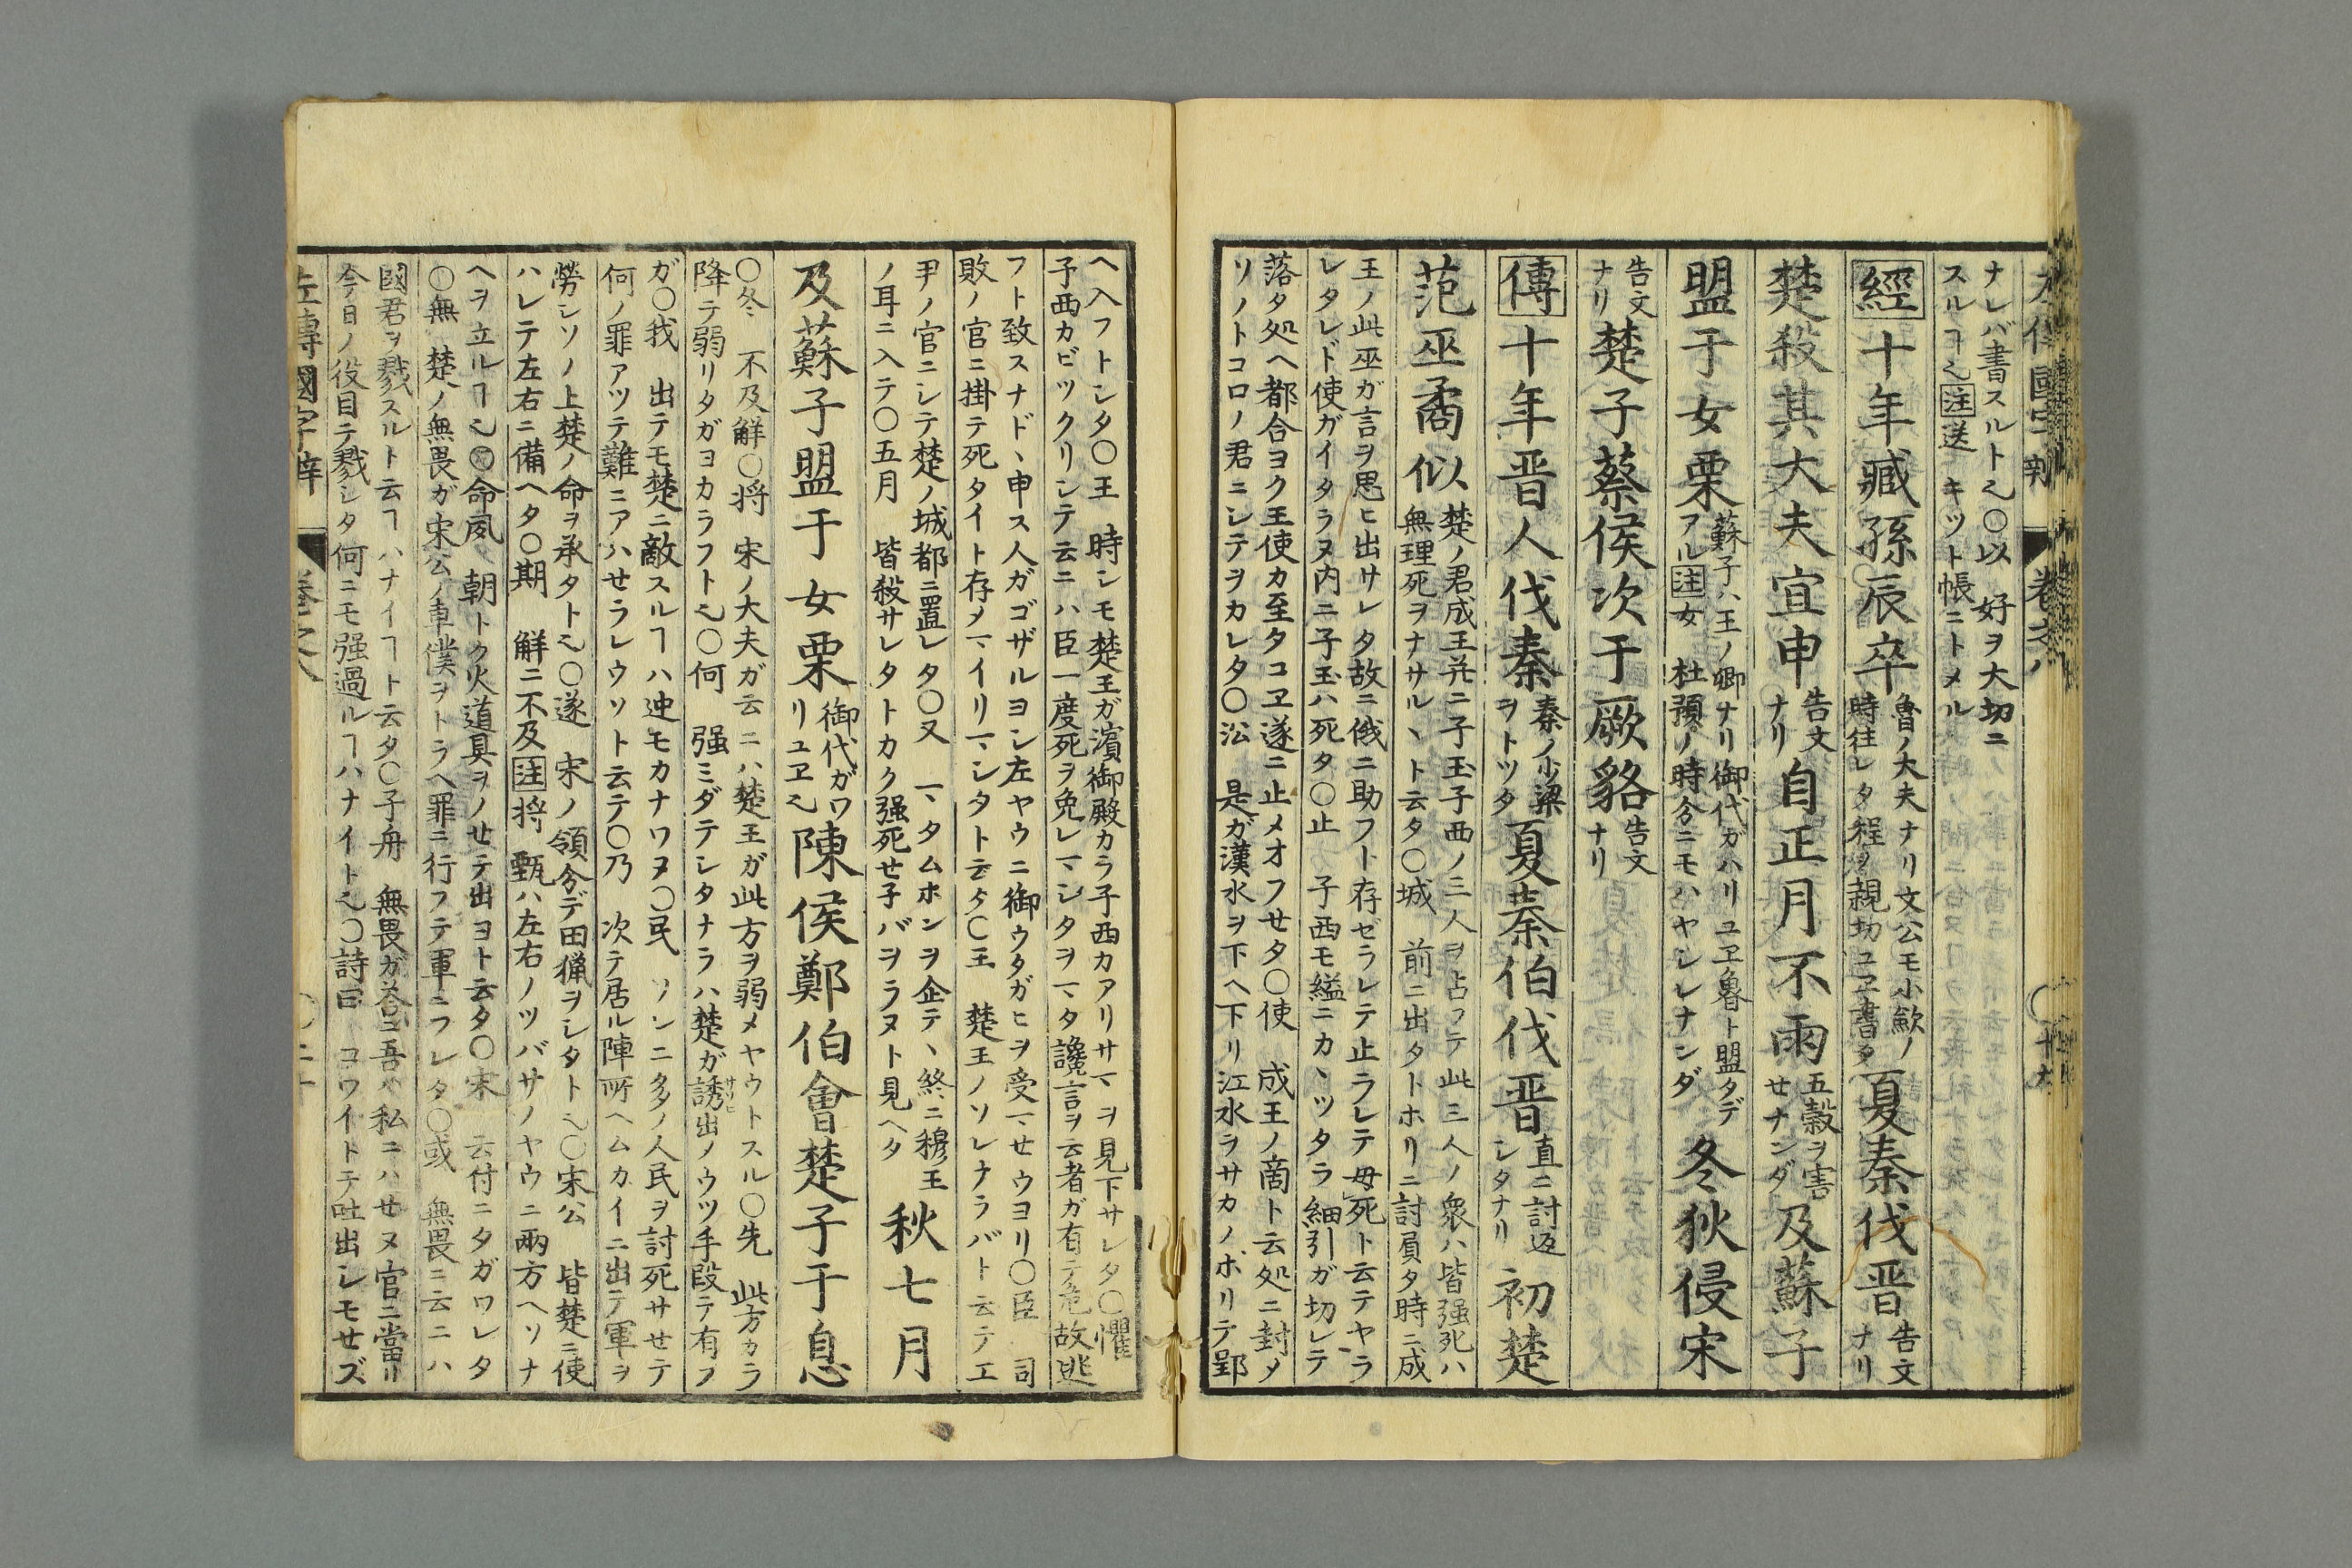 ナレバ書スルト也〇以 好ヲ大切ニ
スルヿ也注送 キツト帳ニトメル
經十年臧孫辰卒魯ノ大夫ナリ文公モ小歛ノ
時往レタ程ヲ親切ユヱ書タ夏秦伐晋告文
ナリ
楚殺其大夫宜申告文
ナリ自正月不雨五穀ヲ害
せナンダ及蘇子
盟于女栗蘇子ハ王ノ卿ナリ御代ガハリユヱ魯ト盟タデ
アル注女 杜預ノ時分ニモハヤシレナンダ冬狄侵宋
告文
ナリ楚子蔡侯次于厥貉告文
ナリ
傳十年晋人伐秦秦ノ少梁
ヲトツタ夏秦伯伐晋直ニ討返
シタナリ初楚
范巫矞似楚ノ君成王并ニ子玉子西ノ三人ヲ占フテ此三人ノ衆ハ皆强死ハ
無理死ヲナサルヽト云タ〇城 前ニ出タトホリニ討負タ時ニ成
王ノ此巫ガ言ヲ思ヒ出サレタ故ニ俄ニ助フト存ゼラレテ止ラレテ毋死ト云テヤラ
レタレド使ガイタラヌ内ニ子玉ハ死タ〇止 子西モ縊ニカヽツタラ細引ガ切レテ
落タ処ヘ都合ヨク王使カ至タコヱ遂ニ止メオフせタ〇使 成王ノ商ト云処ニ封メ
ソノトコロノ君ニシテヲカレタ〇沿 是ガ漢水ヲ下ヘ下リ江水ラサカノボリテ郢
ヘ入フトシタ〇王 時シモ楚王ガ濱御殿カラ子西カアリサマヲ見下サレタ〇懼
子西カビツクリシテ云ニハ臣一度死ヲ免レマシタヲマタ讒言ヲ云者ガ有テ危故逃
フト致スナドヽ申ス人ガゴザルヨシ左ヤウニ御ウタガヒヲ受マせウヨリ〇臣 司
敗ノ官ニ掛テ死タイト存メマイリマシタト云タ〇王 楚王ノソレナラバト云テ工
尹ノ官ニシテ楚ノ城都ニ置レタ〇又 マタムホンヲ企テヽ終ニ穆王
ノ耳ニ入テ〇五月 皆殺サレタトカク强死せ子バヲラヌト見ヘタ秋七月
及蘇子盟于女栗御代ガワ
リユヱ也陳侯鄭伯會楚子于息
〇冬 不及觧〇将 宋ノ大夫ガ云ニハ楚王ガ此方ヲ弱メヤウトスル〇先 此方カラ
降テ弱リタガヨカラフト也〇何 强ミダテシタナラハ楚ガ誘出ノウツ手段テ有フ
ガ〇我 出テモ楚ニ敵スルヿハ迚モカナワヌ〇民 ソシニ多クノ人民ヲ討死サせテ
何ノ罪アツテ難ニアハせラレウソト云テ〇乃 次テ居ル陣所ヘムカイニ出テ軍ヲ
勞シソノ上楚ノ命ヲ承タト也〇遂 宋ノ領分デ田猟ヲシタト也〇宋公 皆楚ニ使
ハレテ左右ニ備ヘタ〇期 觧ニ不及注将 甄ハ左右ノツバサノヤウニ兩方ヘソナ
ヘヲ立ルヿ也〇命夙 朝トク火道具ヲノせテ出ヨト云タ〇宋 云付ニタガワレタ
〇無 楚ノ無畏ガ宋公ノ車僕ヲトラヘ罪ニ行フテ軍ニフレタ〇或 無畏ニ云ニハ
國君ヲ戮スルト云ヿハナイヿト云タ〇子舟 無畏ガ荅ニ吾ハ私ニハせヌ官ニ當リ
今日ノ役目テ戮シタ何ニモ强過ルヿハナイト也〇詩曰 コワイトテ吐出シモせズ